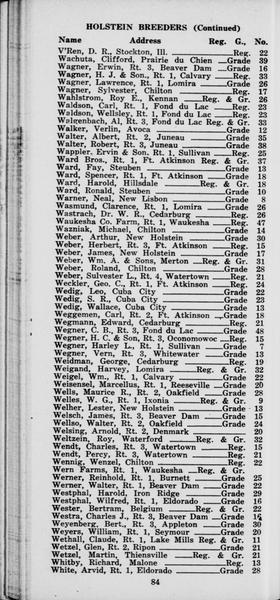 HOLSTEIN BREEDERS (Continued)
Name Address Reg. G., No.
V'Ren, D. R., Stockton, Ill. Reg. 22
Wachuta, Clifford, Prairie du Chien Grade 39
Wagner, Erwin, Rt. 3, Beaver Dam Grade 16
Wagner, H. J. & Son., Rt. 1, Calvary Grade 33
Wagner, Lawrence, Rt. 1, Lomira Grade 26
Wagner, Sylvester, Hilbert Grade 17
Wahlstrom, Roy E., Kennan Reg. & Gr. 26
Waldson, Carl, Rt. 1, Fond du Lac Grade 23
Waldson, Wellsley, Rt. 1, Fond du Lac Grade 23
Walter, Albert, Rt. 2, Juneau Grade 35
Walter, Robert, Rt. 3, Juneau Grade 38
Wappler, Ervin & Son. Rt. 1, Sullivan Reg. 25
Ward Bros., Rt. 1, Ft. Atkinson Reg. & Gr. 37
Ward, Fay, Steuben Grade 13
Ward, Spencer, Rt. 1, Ft. Atkinson Grade 18
Ward, Harold, Hillsdale Reg. & Gr. 12
Ward, Ronald, Steuben Grade 10
Warner, Neal, New Lisbon Grade 8
Wasmund, Clarence, Rt. 1, Lomira Grade 26
Wastrach, Dr. W. R., Cedarburg Reg. 26
Waukesha Co. Farm, Rt. 1, Waukesha Reg. 47
Wazniak, Michael, Chilton Grade 14
Weber, Arthur, New Holstein Grade 30
Weber, Herbert, Rt. 3, Ft. Atkinson Reg. 15
Weber, James, New Holstein Grade 17
Weber, Wm. A. & Sons, Merton Reg. & Gr. 31
Weber, Roland, Chilton Grade 28
Weber, Sylvester L., Rt. 4, Watertown Reg. 21
Weckler, Geo. C., Rt. 1, Ft. Atkinson Reg. 24
Wedig, Leo, Cuba City Grade 22
Wedig, S. R., Cuba City Grade 23
Wedig, Wallace, Cuba City Grade 13
Weggemen, Carl, Rt. 2, Ft. Atkinson Grade 18
Wegmann, Edward, Cedarburg Reg. 21
Wegner, C. B., Rt. 3, Fond du Lac Grade 48
Wegner, H. C. & Son, Rt. 3, Oconomowoc Reg. 15
Wegner, Harley L., Rt. 1, Sullivan Grade 7
Wegner, Vern, Rt. 3, Whitewater Grade 13
Weidman, George, Cedarburg Reg. 19
Weigand, Harvey, Lomira Reg. & Gr. 32
Weigel, Wm., Rt. 1, Calvary Grade 22
Weisensel, Marcellus, Rt. 1, Reeseville Grade 20
Wells, Maurice R., Rt. 2, Oakfield Grade 28
Welles, W. G., Rt. 1, Ixonia Reg. & Gr. 9
Welher, Lester, New Holstein Grade 13
Welsch, James, Rt. 3, Beaver Dam Grade 15
Wellso, Walter, Rt. 2, Oakfield Grade 24
Welsing, Arnold, Rt. 2, Denmark Grade 20
Weltzein, Roy, Waterford Reg. & Gr. 32
Wendt, Charles, Rt. 3, Watertown Reg. 15
Wendt, Percy, Rt. 3, Watertown Reg. 21
Wennig, Wenzel, Chilton Reg. 22
Wern Farms, Rt. 1, Waukesha Reg. & Gr.
Werner, Reinhold, Rt. 1, Burnett Grade 25
Werner, Walter, Rt. 1, Beaver Dam Grade 22
Westphal, Harold, Iron Ridge Grade 29
Westphal, Wilfred, Rt. 1, Eldorado Grade 16
Wester, Bertram, Belgium Reg. & Gr. 22
Westra, Charles J., Rt. 3, Beaver Dam Grade
Weyenberg, Bert., Rt. 3, Appleton Grade 30
Weyers, William, Rt. 1, Seymour Grade 20
Wethall, Claude, Rt. 1, Lake Mills Reg. & Gr. 11
Wetzel, Glen, Rt. 2, Ripon Grade 21
Wetzel, Martin, Thiensville Reg. & Gr. 21
Whitby, Richard, Malone Reg. 13
White, Arvid, Rt. 1, Eldorado Grade 28
84